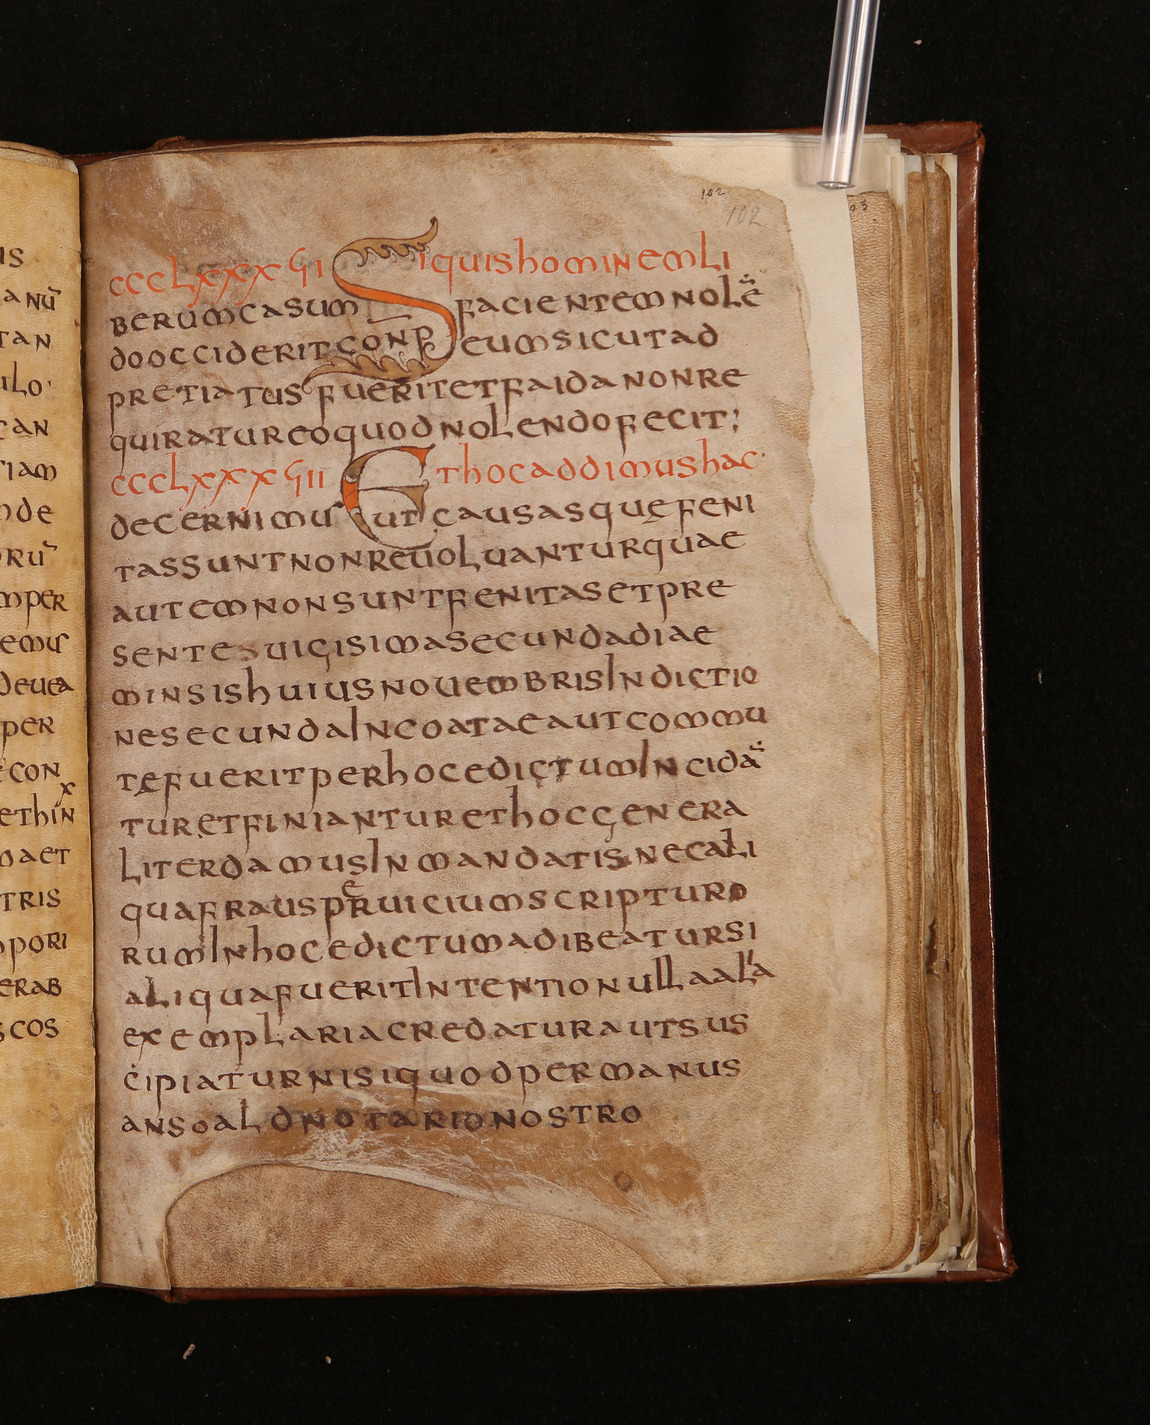 us
anū
tan
ulo
can
tiam
nde
orū
mper
emus
deuea
per
econ
ethin
x
maet
tris
mpori
erab
scos
102
102
CCCLXXXVI Siquishominemli
berumcasum facientemnolē
dooccideritconp eumsicutad
pretiatusfueritetfaidanonre
quiratureoquodnolendofecit;
CCCLXXXVII Ethocaddimushac
decernimus ut causasquefeni
tassuntnonreuoluanturquae
autemnonsuntfenitasetpre
senteuigisimasecundadiae
minsishuiusnouembrisindictio
nesecundaincoataeautcommu
tefueritperhocedictumincidā
turetfinianturethocgenera
literdamusinmandatisnecali
quafrauspreuiciumscripturo
ruminhocedictumadibeatursi
aliquafueritintentionullaalia
exemplariacredaturautsus
cipiaturnisiquodpermanus
ansoaldnotarionostro